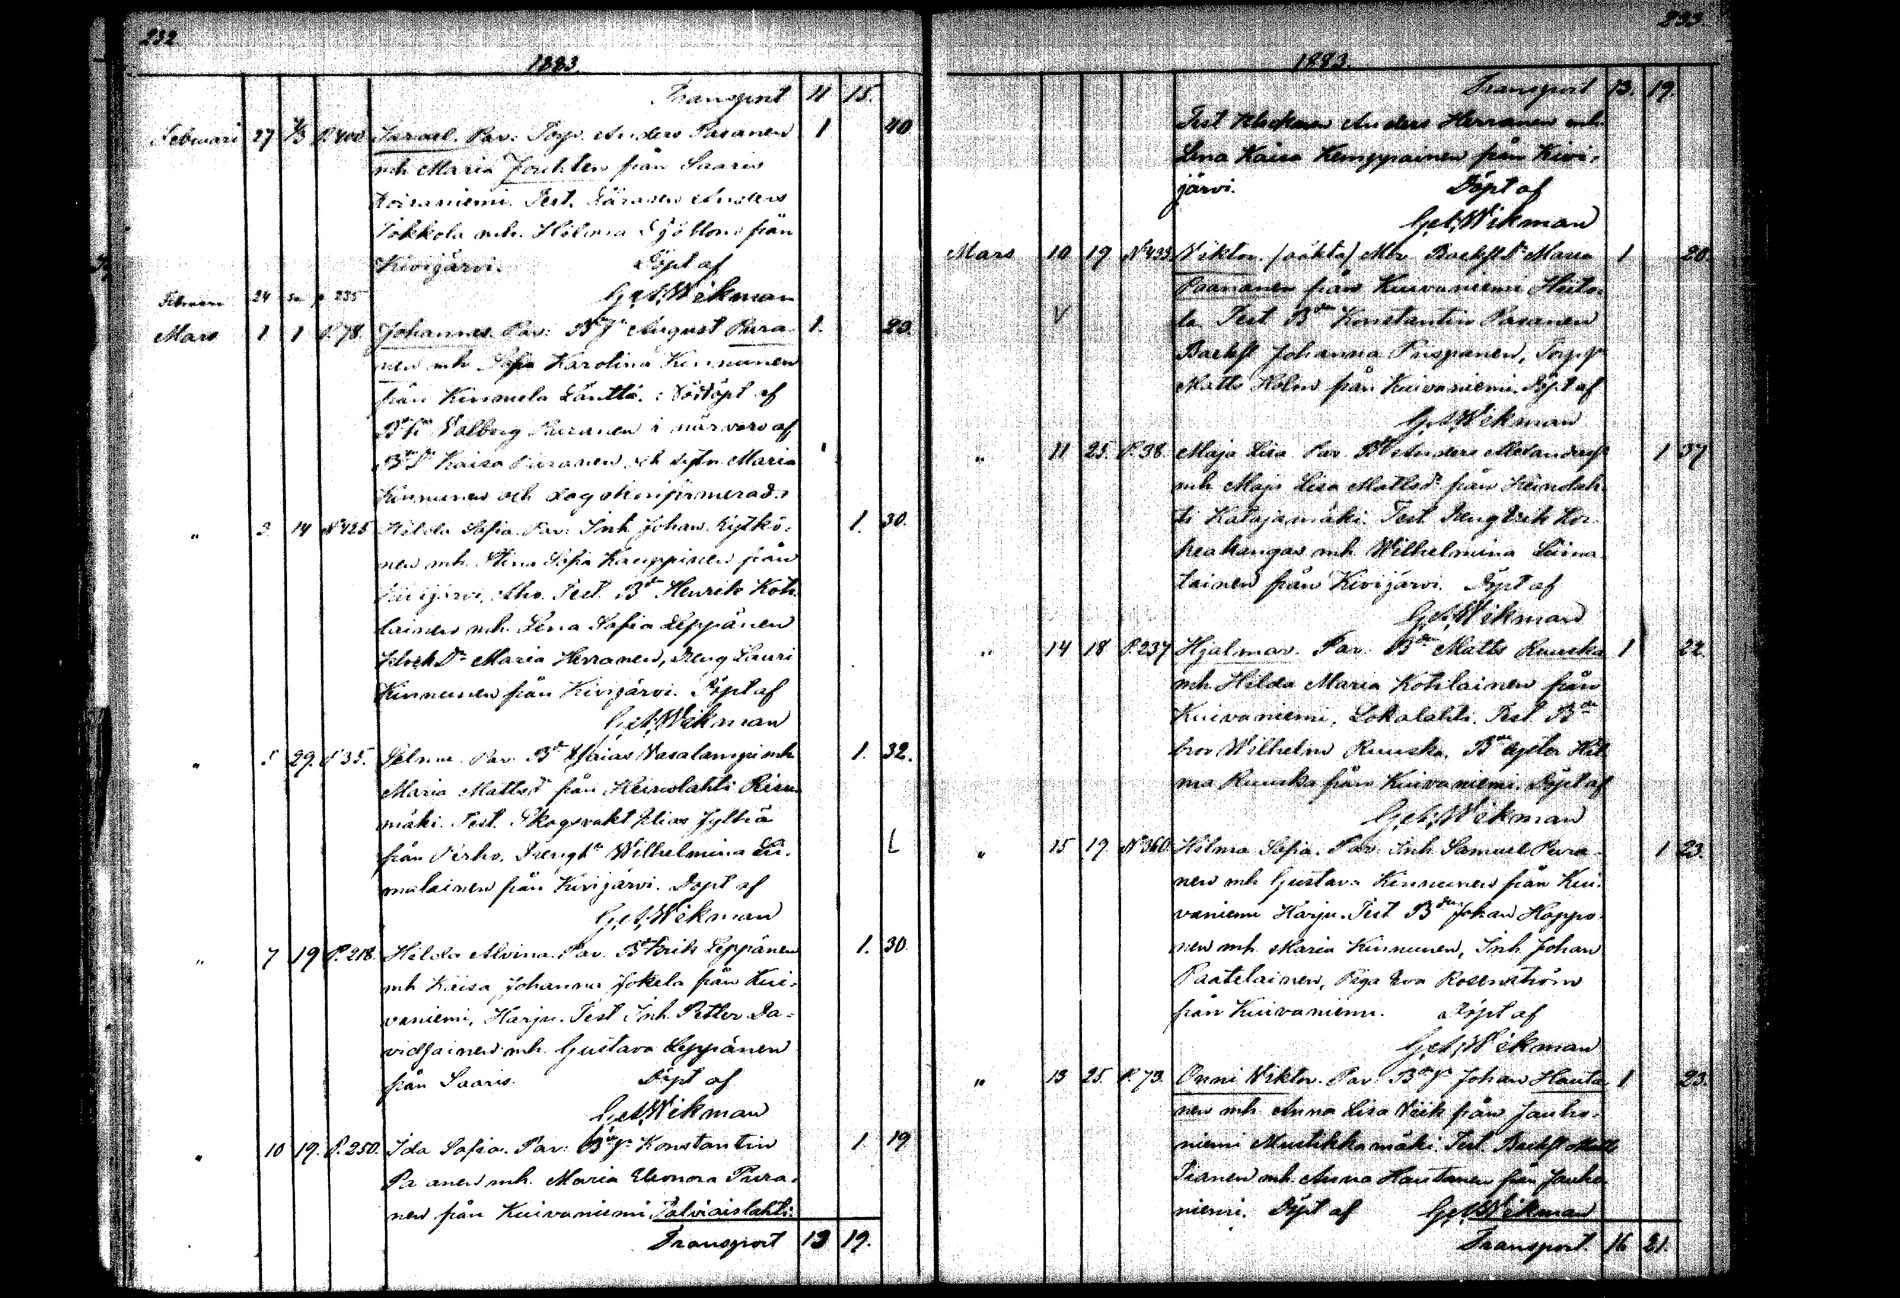 232
1883.
Transport 11 15.
Februari 27 1/3 P.400 Israel. Par: Torp. Anders Pasanen 1 40
mh Maria Jouhten från Saaris
Koiraniemi. Test. Anders
Tokkola mh. Hilma Sjöblom från
Kivijärvi. Döpt af
G.A. Wikman
24 p 235
Mars 1 1 P.78. Johannes. Par: August Pura- 1. 23.
nen mh Sofia Karolina Kinnunen
från Kinnula Länttä. : Nöddöpt af
Valborg Puranen i närvaro af
Kaisa Puranen och Maria
Kinnunen och
" 3 14 N425 Hilda Sofia. Par: Inh Johan Kytkö- 1. 30.
nen mh. Stina Sofia Kauppinen från
Kivijärvi, Aho. Test. Bdn Henrik Koti-
lainen mh. Lena Sofia Leppänen
Maria Herranen, Dreng Lauri
Kinnunen från Kivijärvi. Döpt af
G.A. Wikman
" 5 29. P 35. Selma. Par. Bdn Esaias Vasalampi mh 1. 32.
Maria Mattsdr från Heinolahti
mäki. Test. Skogsvakt Elias Jylhä
från Perho. Drengh Wilhelmina Lii-
matainen från Kivijärvi. Döpt af
G.A. Wikman
" 7 19 P.218. Hilda Alvina. Par. Bdn Erik Leppänen 1. 30
mh Kaisa Johanna Jokela från Kui-
vaniemi, Harju. Test Inh. Petter Da-
vidsainen mh. Gustava Leppänen
från Saaris. Döpt af
G.A. Wikman
" 10 19. P.250. Ida Sofia. Par: Konstantin 1. 19
mh. Maria Eleonora Pura-
nen från Kuivaniemi,
Transport 13 19.
233
1883.
Transport 13. 19.
Test Anders Herranen mh.
Lena Kaisa Kemppainen från Kivi-
järvi. Döpt af
G.A. Wikman
Mars 10 19 N433 Viktor. (oäkta) Mor. Backst Dr Maria 1 28.
Paananen från Kuivaniemi Hieto-
V la. Test Bdn Konstantin Pasanen
Backst Johanna Piispanen, Torp
Matts Holm från Kuivaniemi. Döpt af
G.A. Wikman
" 11 25. P.38. Maja Lisa. Par. Anders 1 37
mh Maja Lisa Mattsdr från Heinolah-
ti Katajamäki. Test. Dreng Erik Kor-
peakangas mh Wilhelmina Liima-
tainen från Kivijärvi. Döpt af
G.A. Wikman
" 14 18 P.237 Hjalmar. Par. Bdn Matts Ruuska 1 22.
mh Hilda Maria Kotilainen från
Kuivaniemi, Lokalahti. Test. Bdn
bror Wilhelm Ruuska, Bdn syster Hil-
ma Ruuska från Kuivaniemi. Döpt af
G.A. Wikman
" 15 19. N360. Hilma Sofia. Par. Inh Samuel Pura- 1 23.
nen mh Gustava Kinnunen från Kui-
vaniemi Harju. Test Bdn Johan Hoppo-
nen mh Maria Kinnunen, Inh Johan
Paatelainen, Piga Eva Rosenström
från Kuivaniemi. Döpt af
G.A. Wikman
" 13 25. P.73. Onni Viktor. Par: Johan Hauta- 1 23.
nen mh Anna Lisa Viik från Jauho-
niemi Mustikkamäki. Test. Backst Matts
Pianen mh. Anna Hautanen från Jauho-
niemi. Döpt af G.A. Wikman
Transport. 16 21.